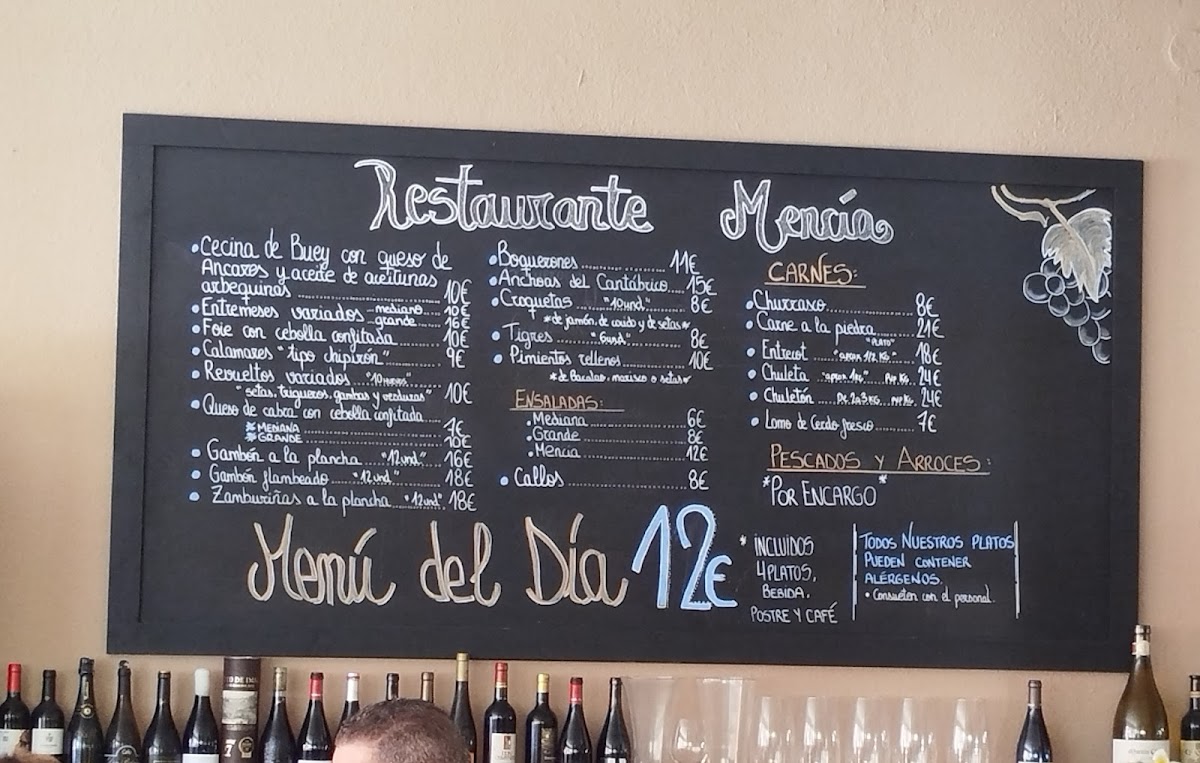 Restaurante Mencía
• Cecina de Buey con queso de
Ancares y aceite de aceitunas
arbequinas 10€
• Entremeses variados mediano 10€
grande 16€
• Foie con cebolla confitada 10€
• Calamares "tipo chipirón" 9€
• Revueltos variados "10 huevos"
"setas, trigueros, gambas y verduras" 10€
• Queso de cabra con cebolla confitada
*MEDIANA 7€
*GRANDE 10€
• Gambón a la plancha "12und" 16€
• Gambón flambeado "12und" 18€
• Zamburiñas a la plancha "12und" 18€
• Boquerones 11€
• Anchoas del Cantábrico 15€
• Croquetas "10und" 8€
*de jamón, de cocido y de setas*
• Tigres "6und" 8€
• Pimientos rellenos 10€
*de Bacalao, marisco o setas*
ENSALADAS:
• Mediana 6€
• Grande 8€
• Mencia 12€
• Callos 8€
CARNES:
• Churrasco 8€
• Carne a la piedra 21€
"PLATO"
• Entrecot "aprox 1/2 Kg" 18€
• Chuleta "aprox 1Kg" PVP KG. 24€
• Chuletón De 2a3 KG PVP KG. 24€
• Lomo de Cerdo fresco 7€
PESCADOS Y ARROCES:
*POR ENCARGO*
Menú del Día 12€
* INCLUIDOS
4 PLATOS,
BEBIDA,
POSTRE Y CAFÉ
TODOS NUESTROS PLATOS
PUEDEN CONTENER
ALÉRGENOS.
• Consulten con el personal.